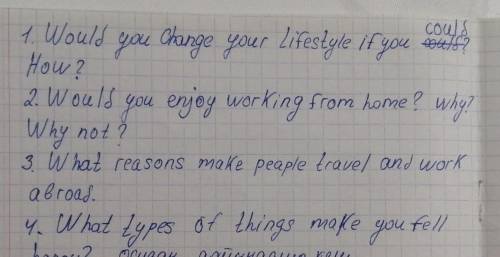 1. Would you change your lifestyle if you could
How?
2. Would you enjoy working from home? Why?
Why not?
3. What reasons make peaple travel and work
abroad.
4. What types of things make you fell